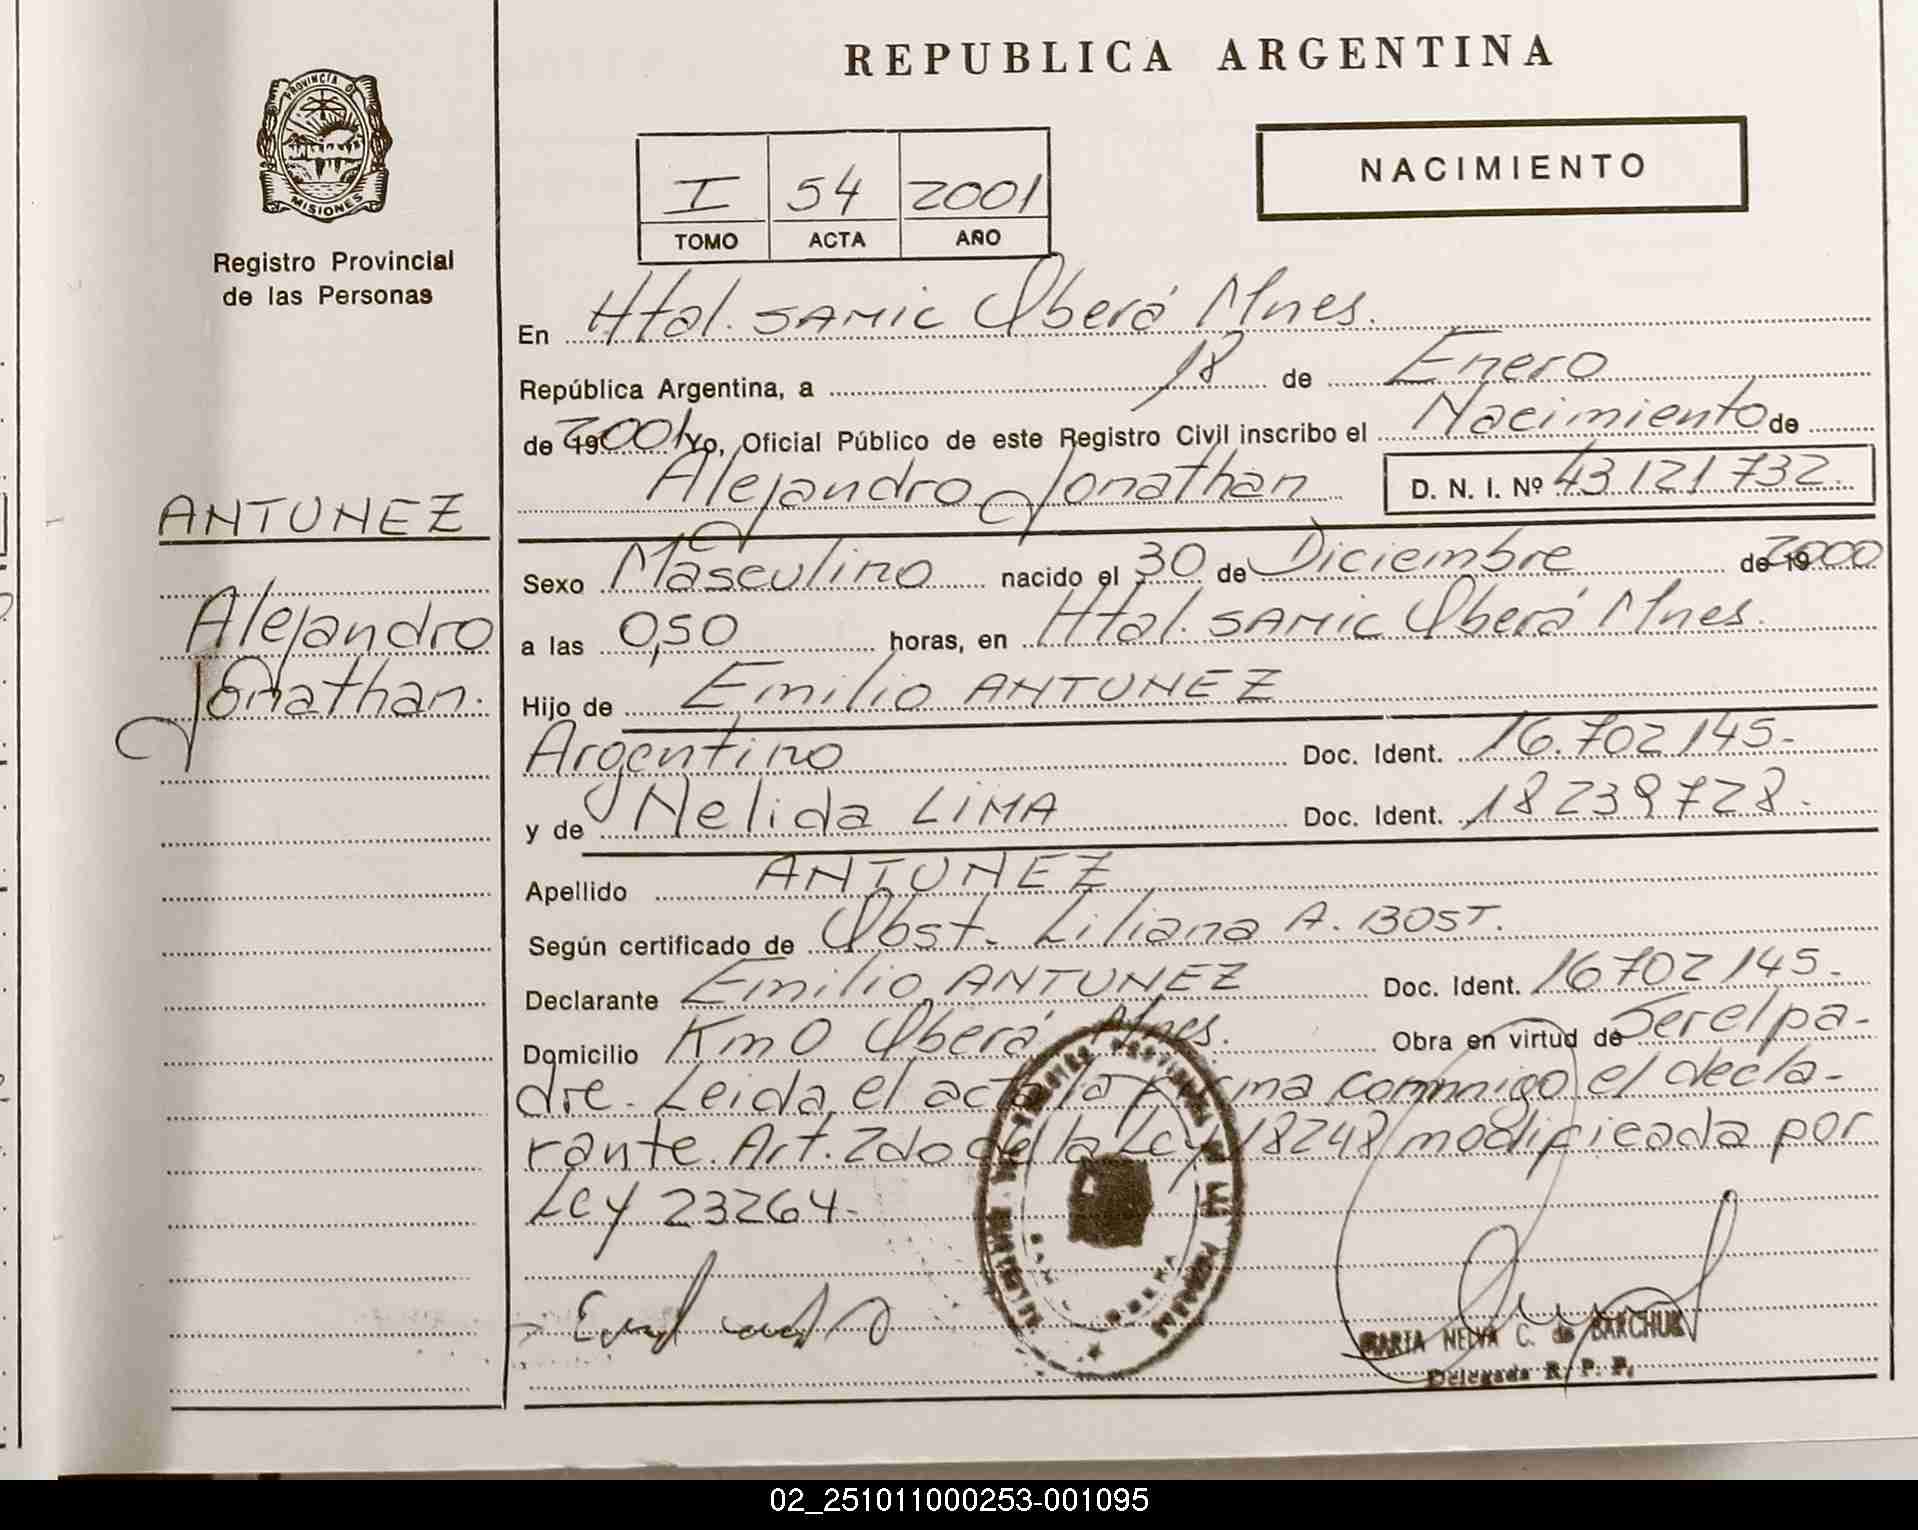 PROVINCIA DE
MISIONES
Registro Provincial
de las Personas
ANTUNEZ
Alejandro
Jonathan.
REPUBLICA ARGENTINA
NACIMIENTO
I 54 2001
TOMO ACTA AÑO
En Htal. SAMIC Oberá Mnes.
República Argentina, a 18 de Enero
de 19 2001 Yo, Oficial Público de este Registro Civil inscribo el Nacimiento de
Alejandro Jonathan D. N. I. Nº 43.121.732.
Sexo Masculino nacido el 30 de Diciembre de 19 2000
a las 0,50 horas, en Htal. SAMIC Oberá Mnes.
Hijo de Emilio ANTUNEZ
Argentino Doc. Ident. 16.702.145.-
y de Nelida LIMA Doc. Ident. 18239728.
Apellido ANTUNEZ
Según certificado de Obst. Liliana A. BOST.
Declarante Emilio ANTUNEZ Doc. Ident. 16702145.-
Domicilio Km 0 Oberá Mnes. Obra en virtud de Ser el pa-
dre. Leida el acta la firma commigo el decla-
rante. Art. 2do de la Ley 18248 modificada por
Ley 23264.-
MARIA NELVA C. de BARCHUK
Delegada R. P. P.
02_251011000253-001095